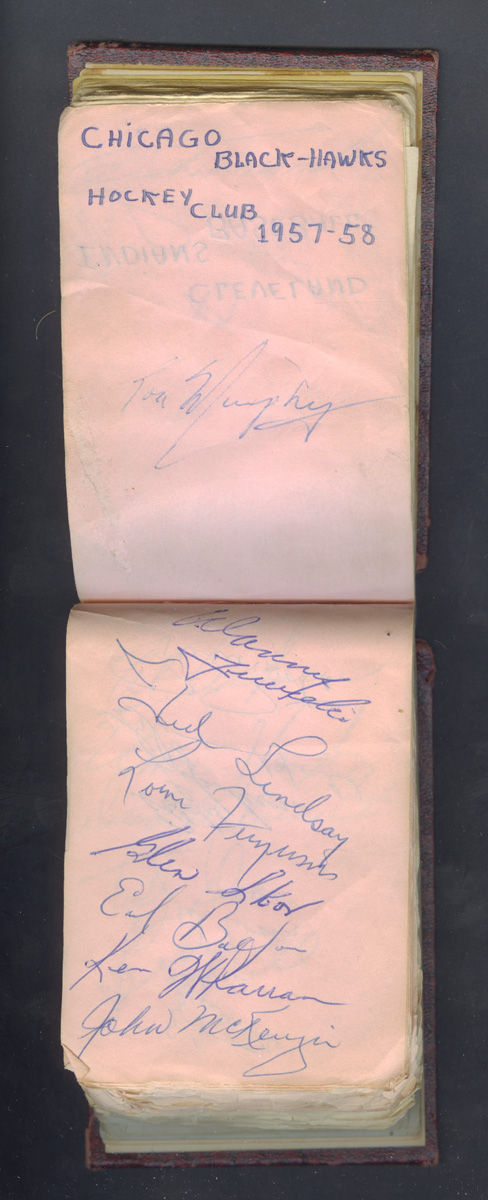 CHICAGO
BLACK-HAWKS
HOCKEY
CLUB
1957-58
INDIANS
CLEVELAND
Ron Murphy
Ted Lindsay
Lorne Ferguson
Glen Skov
Earl Balfour
Ken Wharram
John McKenzie